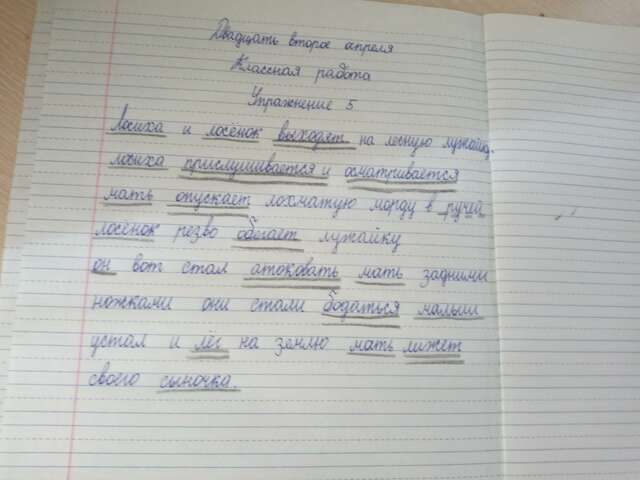 Двадцать второе апреля
Классная работа
Упражнение 5
Лосиха и лосёнок выходят на лесную лужайку.
лосиха прислушивается и осматривается
мать опускает лохматую морду в ручей
лосёнок резво обегает лужайку
он вот стал атоковать мать задними
ножками они стали бодаться малыш
устал и лёг на землю мать лижет
своего сыночка.